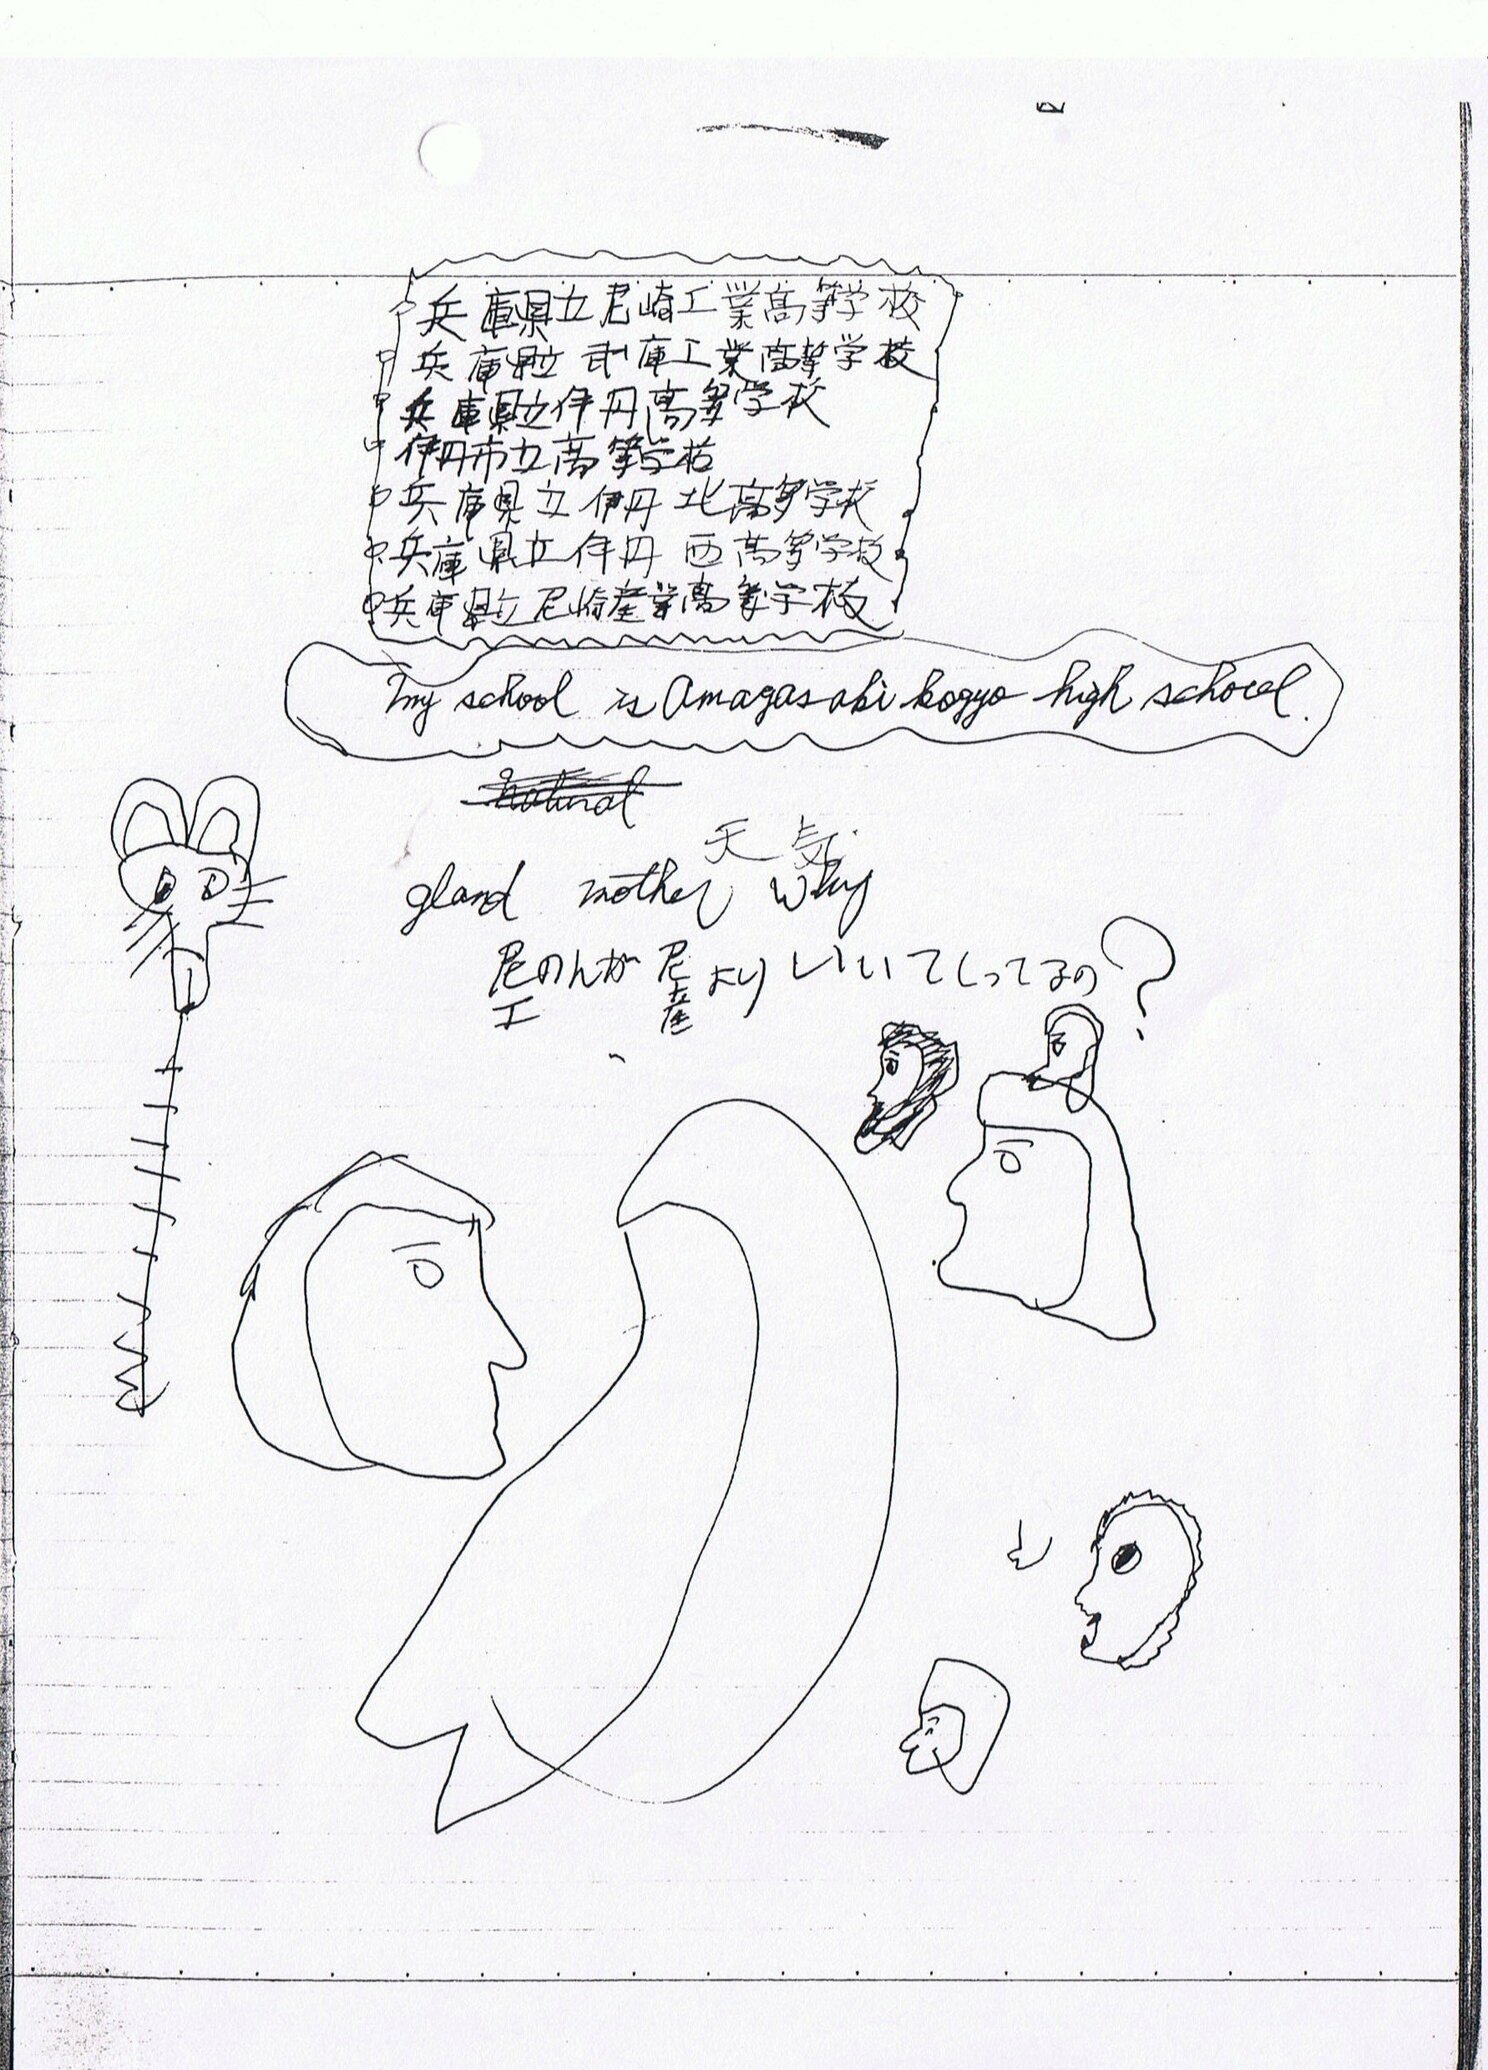 兵庫県立尼崎工業高等学校
兵庫県立武庫工業高等学校
兵庫県立伊丹高等学校
伊丹市立高等学校
兵庫県立伊丹北高等学校
兵庫県立伊丹西高等学校
兵庫県立尼崎産業高等学校
my school is Amagasaki kogyo high school.
natural
天気
gland mother why
尼工のんが尼産よりいいてしってるの?